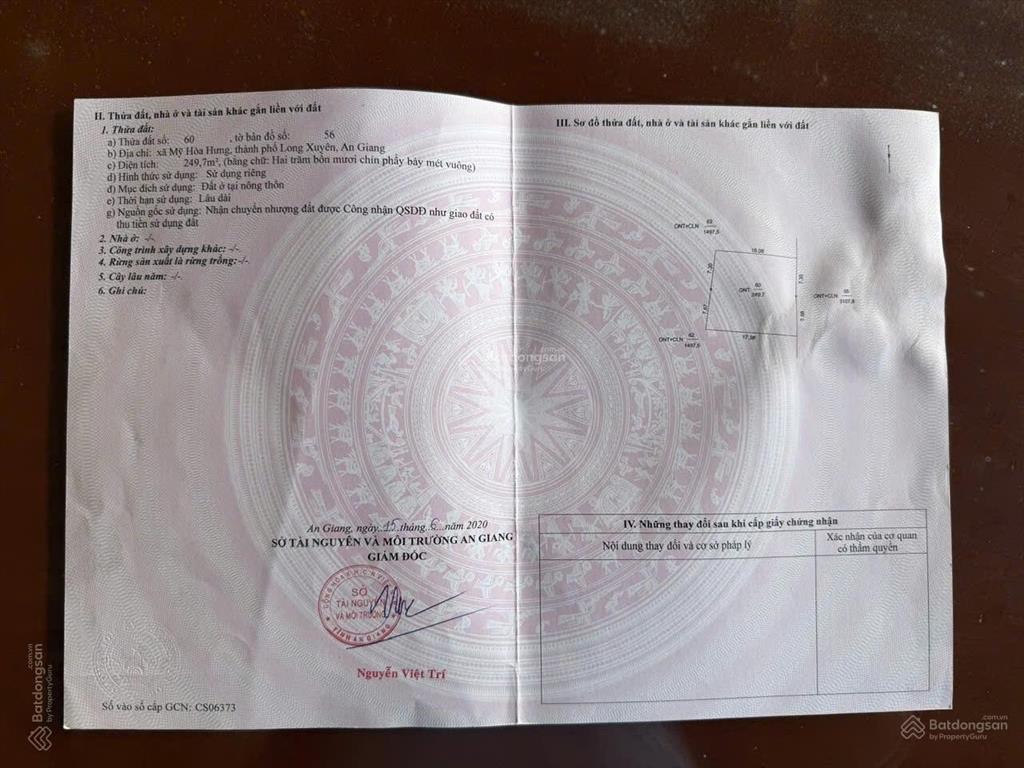 II. Thửa đất, nhà ở và tài sản khác gắn liền với đất
1. Thửa đất:
a) Thửa đất số: 60 , tờ bản đồ số: 56
b) Địa chỉ: xã Mỹ Hòa Hưng, thành phố Long Xuyên, An Giang
c) Diện tích: 249,7m², (bằng chữ: Hai trăm bốn mươi chín phẩy bảy mét vuông)
d) Hình thức sử dụng: Sử dụng riêng
đ) Mục đích sử dụng: Đất ở tại nông thôn
e) Thời hạn sử dụng: Lâu dài
g) Nguồn gốc sử dụng: Nhận chuyển nhượng đất được Công nhận QSDĐ như giao đất có
thu tiền sử dụng đất
2. Nhà ở: -/-
3. Công trình xây dựng khác: -/-
4. Rừng sản xuất là rừng trồng:-/-
5. Cây lâu năm: -/-
6. Ghi chú:
An Giang, ngày 15 tháng 6 năm 2020
SỞ TÀI NGUYÊN VÀ MÔI TRƯỜNG AN GIANG
GIÁM ĐỐC
SỞ
TÀI NGUYÊN
VÀ MÔI TRƯỜNG
TỈNH AN GIANG
Nguyễn Việt Trí
Số vào sổ cấp GCN: CS06373
III. Sơ đồ thửa đất, nhà ở và tài sản khác gắn liền với đất
ONT+CLN 62
1497,5
7,30
7,30
ONT 60
249,7
ONT+CLN
7,67
17,38
ONT+CLN 62
1497,5
IV. Những thay đổi sau khi cấp giấy chứng nhận
Nội dung thay đổi và cơ sở pháp lý
Xác nhận của cơ quan
có thẩm quyền
Batdongsan
.com.vn
by PropertyGuru
Batdongsan
.com.vn
Batdongsan
.com.vn
by PropertyGuru